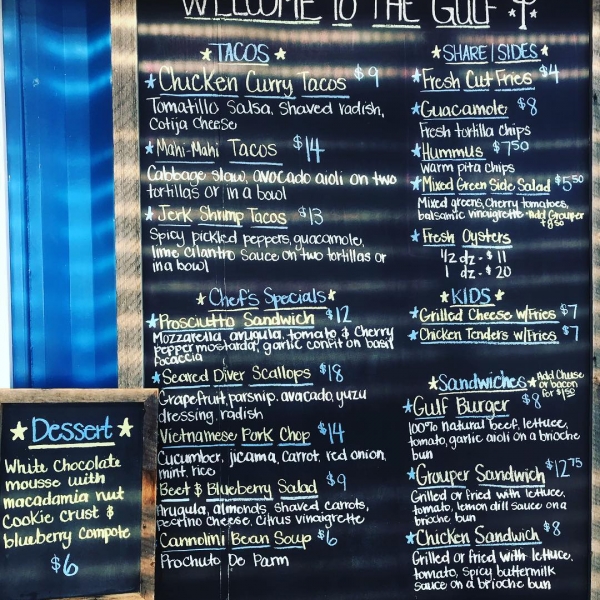 WELCOME TO THE GULF
TACOS
Chicken Curry Tacos $9
Tomatillo Salsa, Shaved radish,
Cotija Cheese
Mahi-Mahi Tacos $14
Cabbage slaw, avocado aioli on two
tortillas or in a bowl
Jerk Shrimp Tacos $13
Spicy pickled peppers, guacamole,
lime cilantro sauce on two tortillas or
in a bowl
Chef's Specials
Prosciutto Sandwich $12
Mozzarella, arugula, tomato & Cherry
Pepper mostarda, garlic confit on basil
Focaccia
Seared Diver Scallops $18
Grapefruit, parsnip, avocado, yuzu
dressing, radish
Vietnamese Pork Chop $14
Cucumber, jicama, carrot, red onion,
mint rice
Beet & Blueberry Salad $9
Arugula, almonds, shaved carrots,
pecorino cheese, citrus vinaigrette
Cannolini Bean Soup $6
Prochuto De Parm
SHARE | SIDES
Fresh Cut Fries $4
Guacamole $8
Fresh tortilla chips
Hummus $7.50
Warm pita chips
Mixed Green Side Salad $5.50
Mixed greens, Cherry tomatoes,
balsamic vinaigrette *Add Grouper
+8.50
Fresh Oysters
1/2 dz - $11
1 dz - $20
KIDS
Grilled Cheese w/Fries $7
Chicken Tenders w/Fries $7
Sandwiches
*Add Cheese
or bacon
for $1.50
Gulf Burger $8
100% natural beef, lettuce,
tomato, garlic aioli on a brioche
bun
Grouper Sandwich $12.75
Grilled or fried with lettuce,
tomato, lemon dill sauce on a
brioche bun
Chicken Sandwich $8
Grilled or fried with lettuce,
tomato, spicy buttermilk
sauce on a brioche bun
Dessert
White Chocolate
mousse with
macadamia nut
Cookie Crust &
blueberry compote
$6